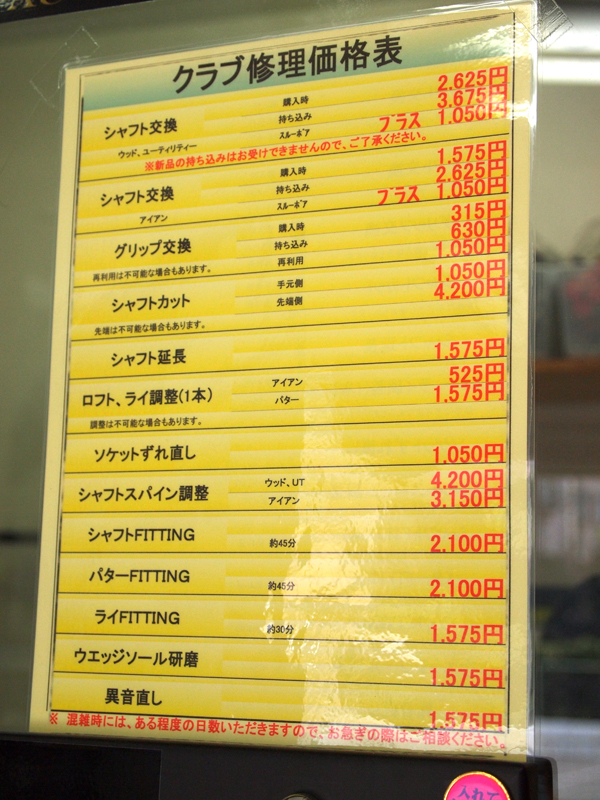 クラブ修理価格表
シャフト交換
ウッド、ユーティリティー
購入時 2.625円
持ち込み 3.675円
スルーボア プラス 1.050円
※新品の持ち込みはお受けできませんので、ご了承ください。
シャフト交換
アイアン
購入時 1.575円
持ち込み 2.625円
スルーボア プラス 1.050円
グリップ交換
再利用は不可能な場合もあります。
購入時 315円
持ち込み 630円
再利用 1.050円
シャフトカット
先端は不可能な場合もあります。
手元側 1.050円
先端側 4.200円
シャフト延長 1.575円
ロフト、ライ調整(1本)
調整は不可能な場合もあります。
アイアン 525円
パター 1.575円
ソケットずれ直し 1.050円
シャフトスパイン調整
ウッド、UT 4.200円
アイアン 3.150円
シャフトFITTING 約45分 2.100円
パターFITTING 約45分 2.100円
ライFITTING 約30分 1.575円
ウエッジソール研磨 1.575円
異音直し 1.575円
※ 混雑時には、ある程度の日数いただきますので、お急ぎの際はご相談ください。
入れて